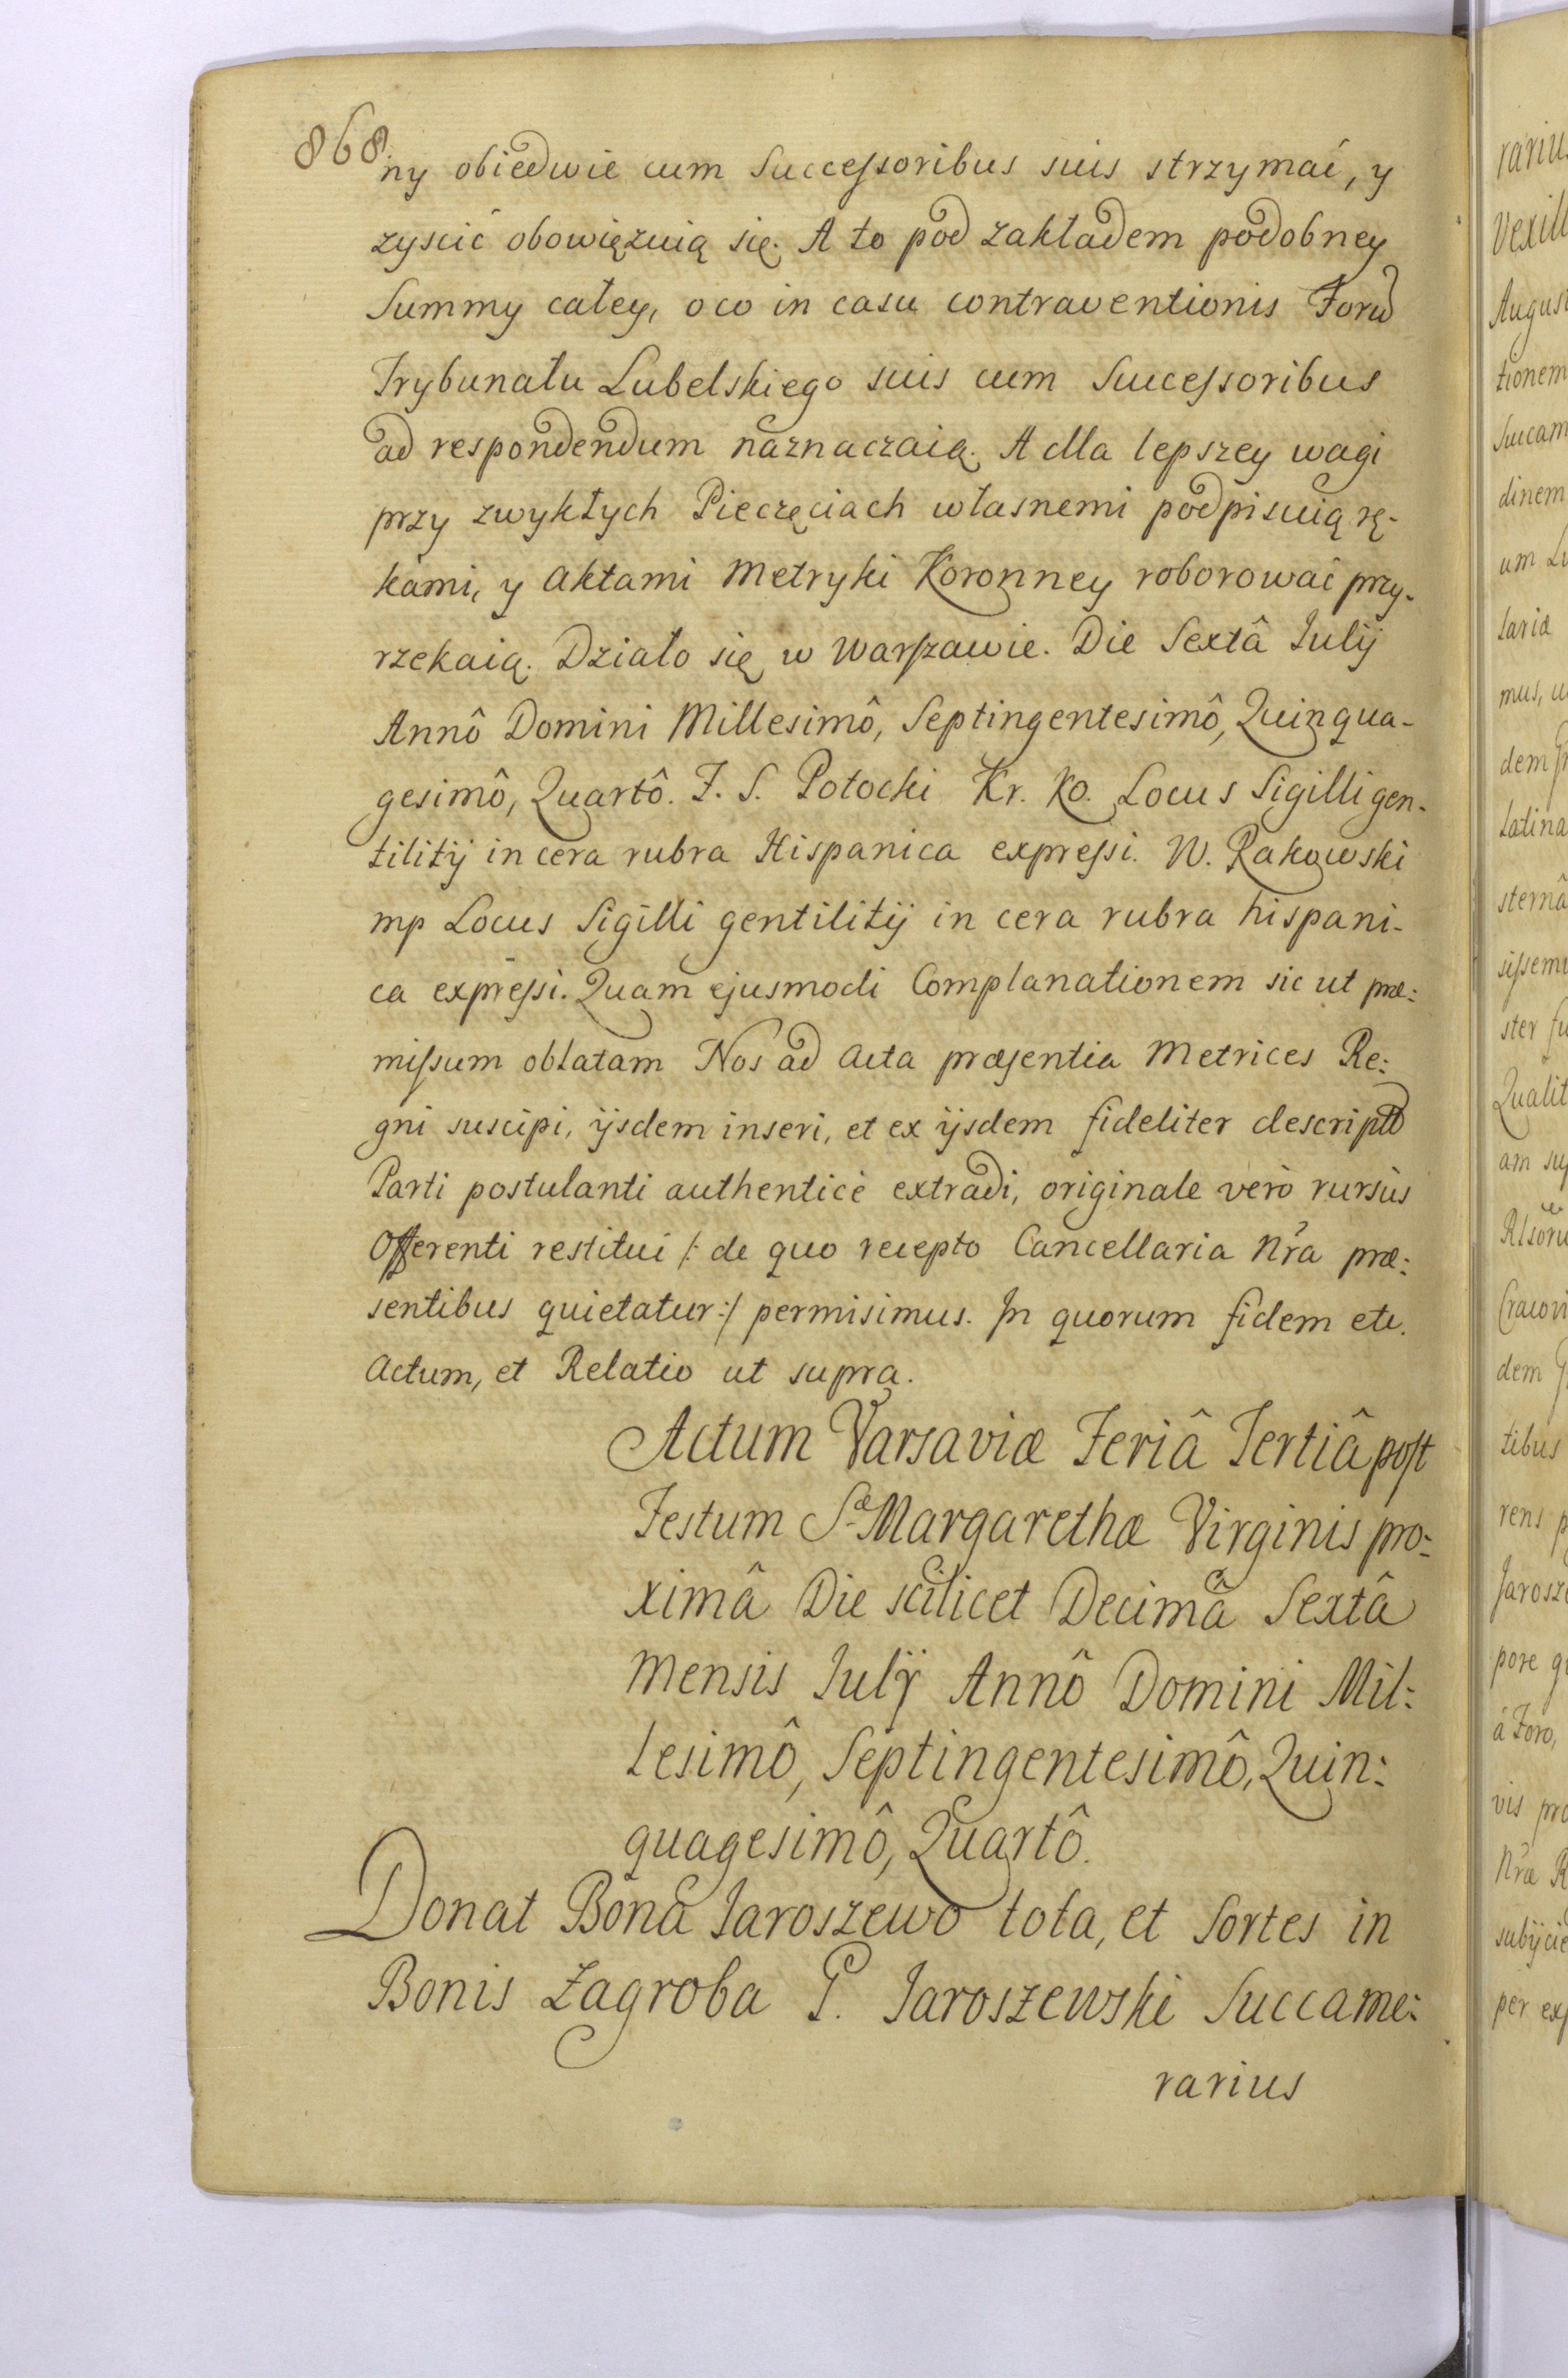 868
ny obiedwie cum Successoribus suis strzymać, y
zyscić obowięzuią się. A to pod zakładem podobney
Summy całey, o co in casu contraventionis Forū
Trybunału Lubelskiego suis cum Successoribus
ad respondendum naznaczaią. A dla lepszey wagi
przy zwykłych Pieczęciach własnemi podpisuią rę-
kami, y Aktami Metryki Koronney roborować przy-
rzekaią. Działo się w Warszawie. Die Sextâ Julij
Annô Domini Millesimô, Septingentesimô, Quinqua-
gesimô, Quartô. F. S. Potocki Kr. Ko. Locus Sigilli gen-
tilitij in cera rubra Hispanica expressi. W. Rakowski
mp Locus Sigilli gentilitij in cera rubra hispani-
ca expressi. Quam ejusmodi Complanationem sic ut præ:
missum oblatam Nos ad Acta præsentia Metrices Re:
gni suscipi, ijsdem inseri, et ex ijsdem fideliter descriptū
Parti postulanti authenticè extradi, originale verò rursùs
Offerenti restitui /: de quo recepto Cancellaria Nr̃a præ:
sentibus quietatur :/ permisimus. In quorum fidem etc.
Actum, et Relatio ut supra.
Actum Varsaviæ Feriâ Tertiâ post
Festum Sæ Margarethæ Virginis pro:
ximâ Die scilicet Decimâ Sextâ
Mensis Julij Annô Domini Mil:
lesimô, Septingentesimô, Quin:
quagesimô, Quartô.
Donat Bona Jaroszewo tota, et Sortes in
Bonis Zagroba G. Jaroszewski Succame:
rarius